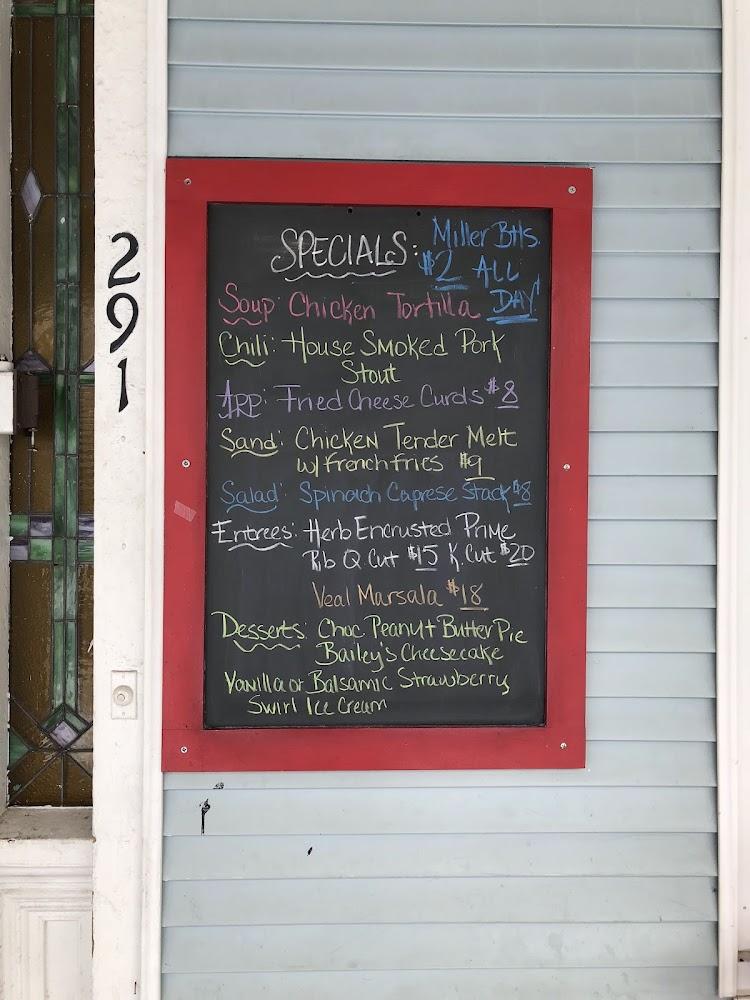 291
SPECIALS:
Miller Btls.
$2 ALL
DAY!
Soup: Chicken Tortilla
Chili: House Smoked Pork
Stout
APP: Fried Cheese Curds $8
Sand: Chicken Tender Melt
w/ french fries $9
Salad: Spinach Caprese Stack $8
Entrees: Herb Encrusted Prime
Rib Q.Cut $15 K.Cut $20
Veal Marsala $18
Desserts: Choc Peanut Butter Pie
Bailey's Cheesecake
Vanilla or Balsamic Strawberry
Swirl Ice Cream